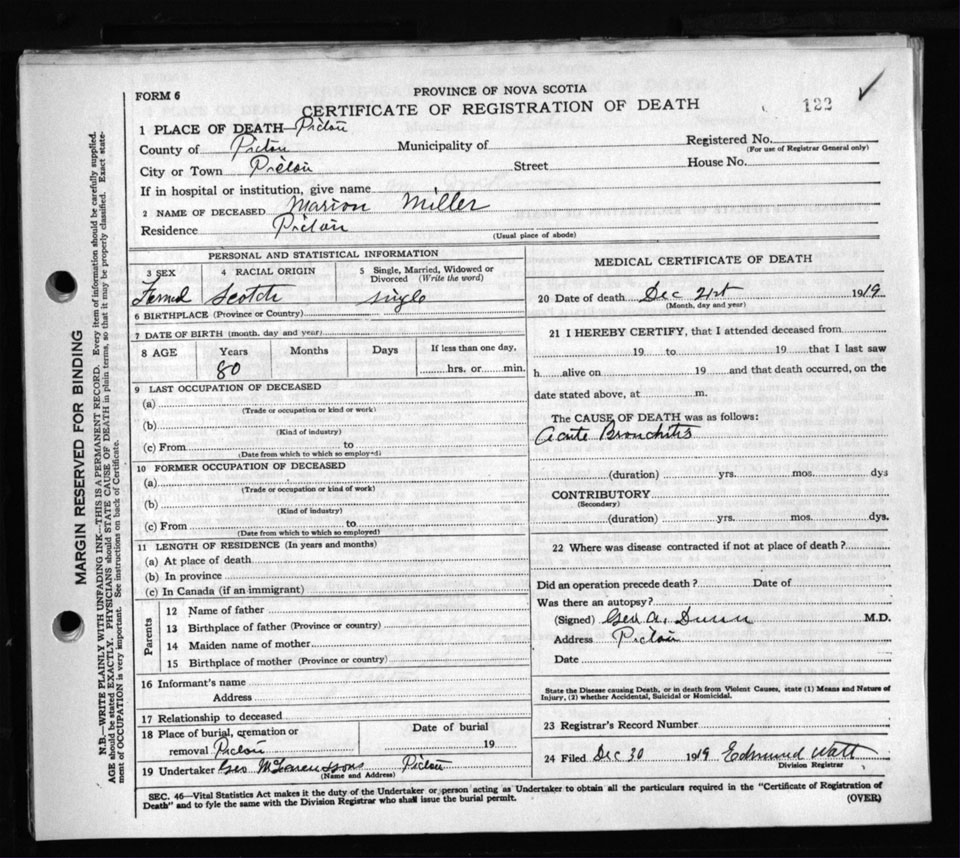 FORM 6
PROVINCE OF NOVA SCOTIA
CERTIFICATE OF REGISTRATION OF DEATH
122
1 PLACE OF DEATH—Pictou
County of Pictou Municipality of Registered No.
(For use of Registrar General only)
City or Town Pictou Street House No.
If in hospital or institution, give name
2 NAME OF DECEASED Marion Miller
Residence Pictou
(Usual place of abode)
PERSONAL AND STATISTICAL INFORMATION
3 SEX 4 RACIAL ORIGIN 5 Single, Married, Widowed or Divorced (Write the word)
Femal Scotch single
6 BIRTHPLACE (Province or Country)
7 DATE OF BIRTH (month, day and year)
8 AGE Years Months Days If less than one day,
80 hrs. or min.
9 LAST OCCUPATION OF DECEASED
(a)
(Trade or occupation or kind or work)
(b)
(Kind of industry)
(c) From to
(Date from which to which so employed)
10 FORMER OCCUPATION OF DECEASED
(a)
(Trade or occupation or kind of work)
(b)
(Kind of industry)
(c) From to
(Date from which to which so employed)
11 LENGTH OF RESIDENCE (In years and months)
(a) At place of death
(b) In province
(c) In Canada (if an immigrant)
Parents
12 Name of father
13 Birthplace of father (Province or country)
14 Maiden name of mother
15 Birthplace of mother (Province or country)
16 Informant's name
Address
17 Relationship to deceased
18 Place of burial, cremation or Date of burial
removal Pictou 19
19 Undertaker Geo Pictou
(Name and Address)
MEDICAL CERTIFICATE OF DEATH
20 Date of death Dec 21st 1919
(Month, day and year)
21 I HEREBY CERTIFY, that I attended deceased from
19 to 19 that I last saw
h alive on 19 and that death occurred, on the
date stated above, at m.
The CAUSE OF DEATH was as follows:
Acute Bronchitis
(duration) yrs. mos. dys
CONTRIBUTORY
(Secondary)
(duration) yrs. mos. dys.
22 Where was disease contracted if not at place of death?
Did an operation precede death? Date of
Was there an autopsy?
(Signed) Geo. A. Dunn M.D.
Address Pictou
Date
State the Disease causing Death, or in death from Violent Causes, state (1) Means and Nature of
Injury, (2) whether Accidental, Suicidal or Homicidal.
23 Registrar's Record Number
24 Filed Dec 30 1919 Edmund Watt
Division Registrar
SEC. 46—Vital Statistics Act makes it the duty of the Undertaker or person acting as Undertaker to obtain all the particulars required in the "Certificate of Registration of
Death" and to fyle the same with the Division Registrar who shall issue the burial permit.
(OVER)
MARGIN RESERVED FOR BINDING
N.B.—WRITE PLAINLY WITH UNFADING INK—THIS IS A PERMANENT RECORD. Every item of information should be carefully supplied.
AGE should be stated EXACTLY. PHYSICIANS should STATE CAUSE OF DEATH in plain terms, so that it may be properly classified. Exact state-
ment of OCCUPATION is very important. See instructions on back of Certificate.